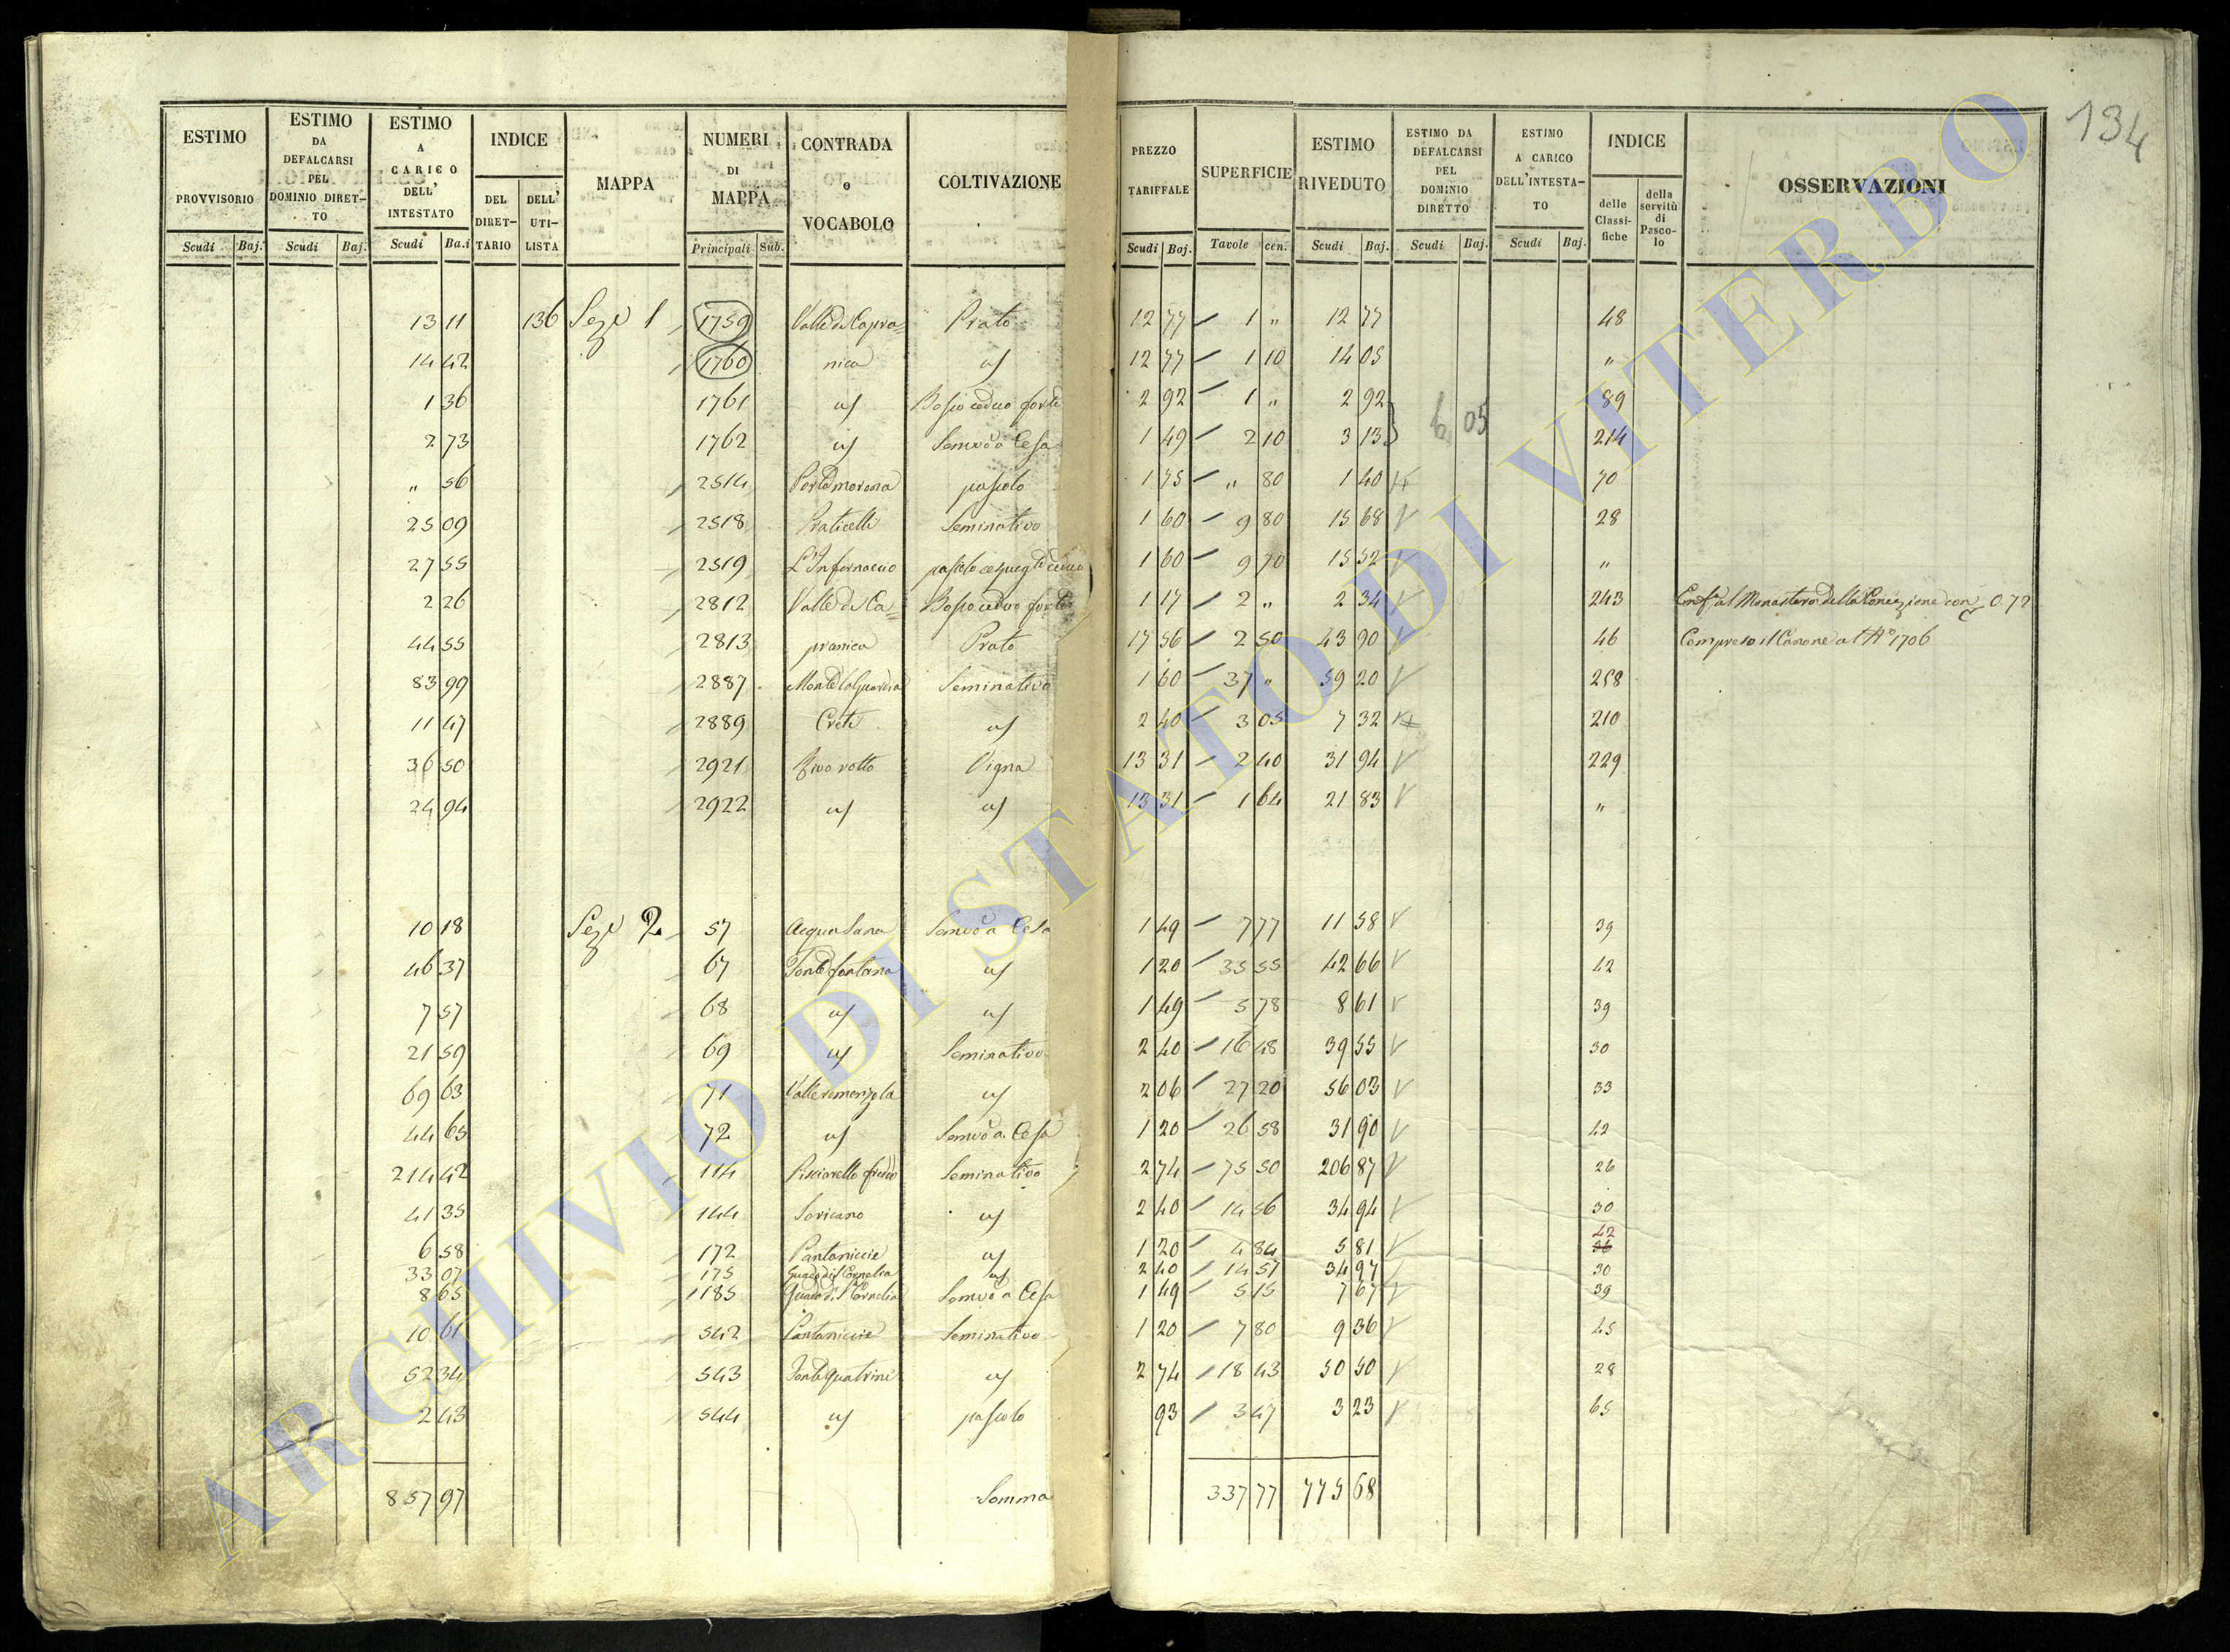 134
ESTIMO PROVVISORIO Scudi Baj.
ESTIMO DA DEFALCARSI PEL DOMINIO DIRETTO Scudi Baj.
ESTIMO A CARICO DELL' INTESTATO Scudi Ba.i
INDICE DEL DIRETTARIO DELL' UTILISTA
MAPPA
NUMERI DI MAPPA Principali Sub.
CONTRADA o VOCABOLO
COLTIVAZIONE
PREZZO TARIFFALE Scudi Baj.
SUPERFICIE Tavole cen.
ESTIMO RIVEDUTO Scudi Baj.
ESTIMO DA DEFALCARSI PEL DOMINIO DIRETTO Scudi Baj.
ESTIMO A CARICO DELL'INTESTATO Scudi Baj.
INDICE delle Classifiche della servitù di Pascolo
OSSERVAZIONI
13 11 136 Sez.e 1 1759 Valle di Capra= Prato 12 77 1 " 12 77 48
14 42 1760 nica uſ 12 77 1 10 14 05 "
1 36 1761 uſ Bosco ceduo forte 2 92 1 " 2 92 89
2 73 1762 uſ Semvo a Cesa 1 49 2 10 3 13 6 05 214
" 56 2514 pascolo 1 75 " 80 1 40 70
25 09 2518 Praticelli Seminativo 1 60 9 80 15 68 28
27 55 2519 L'Infernaccio pascolo 1 60 9 70 15 52 "
2 26 2812 Valle di Ca= Bosco ceduo forte 1 17 2 " 2 34 243 Enf.a al Monastero della Concezione con 0.72
44 55 2813 pranica Prato 17 56 2 50 43 90 46 Compreso il Canone al No 1706
83 99 2887 Monte la Guardia Seminativo 1 60 37 " 59 20 258
11 47 2889 Crete uſ 2 40 3 05 7 32 210
36 50 2921 Rivo rotto Vigna 13 31 2 40 31 94 229
24 94 2922 uſ uſ 13 31 1 64 21 83 "
10 18 Sez.e 2 57 Acqua Sana Semvo a Cesa 1 49 7 77 11 58 39
46 37 67 Fonte fontana uſ 1 20 35 55 42 66 42
7 57 68 uſ uſ 1 49 5 78 8 61 39
21 59 69 uſ Seminativo 2 40 16 48 39 55 30
69 63 71 Valleremenzola uſ 2 06 27 20 56 03 33
44 65 72 uſ Semvo a Cesa 1 20 26 58 31 90 42
214 42 114 Pisciarello freddo Seminativo 2 74 75 50 206 87 26
41 35 144 Soricano uſ 2 40 14 56 34 94 30
6 58 172 Pantaniccie uſ 1 20 4 84 5 81 42
33 07 175 Guado di S Cornelia uſ 2 40 14 57 34 97 30
8 65 185 Guado di S Cornelia Semvo a Cesa 1 49 5 15 7 67 39
10 61 542 Pantaniccie Seminativo 1 20 7 80 9 36 45
52 34 543 Fonte quatrini uſ 2 74 18 43 50 50 28
2 43 544 uſ pascolo 93 3 47 3 23 65
857 97 Somma 337 77 775 68
ARCHIVIO DI STATO DI VITERBO